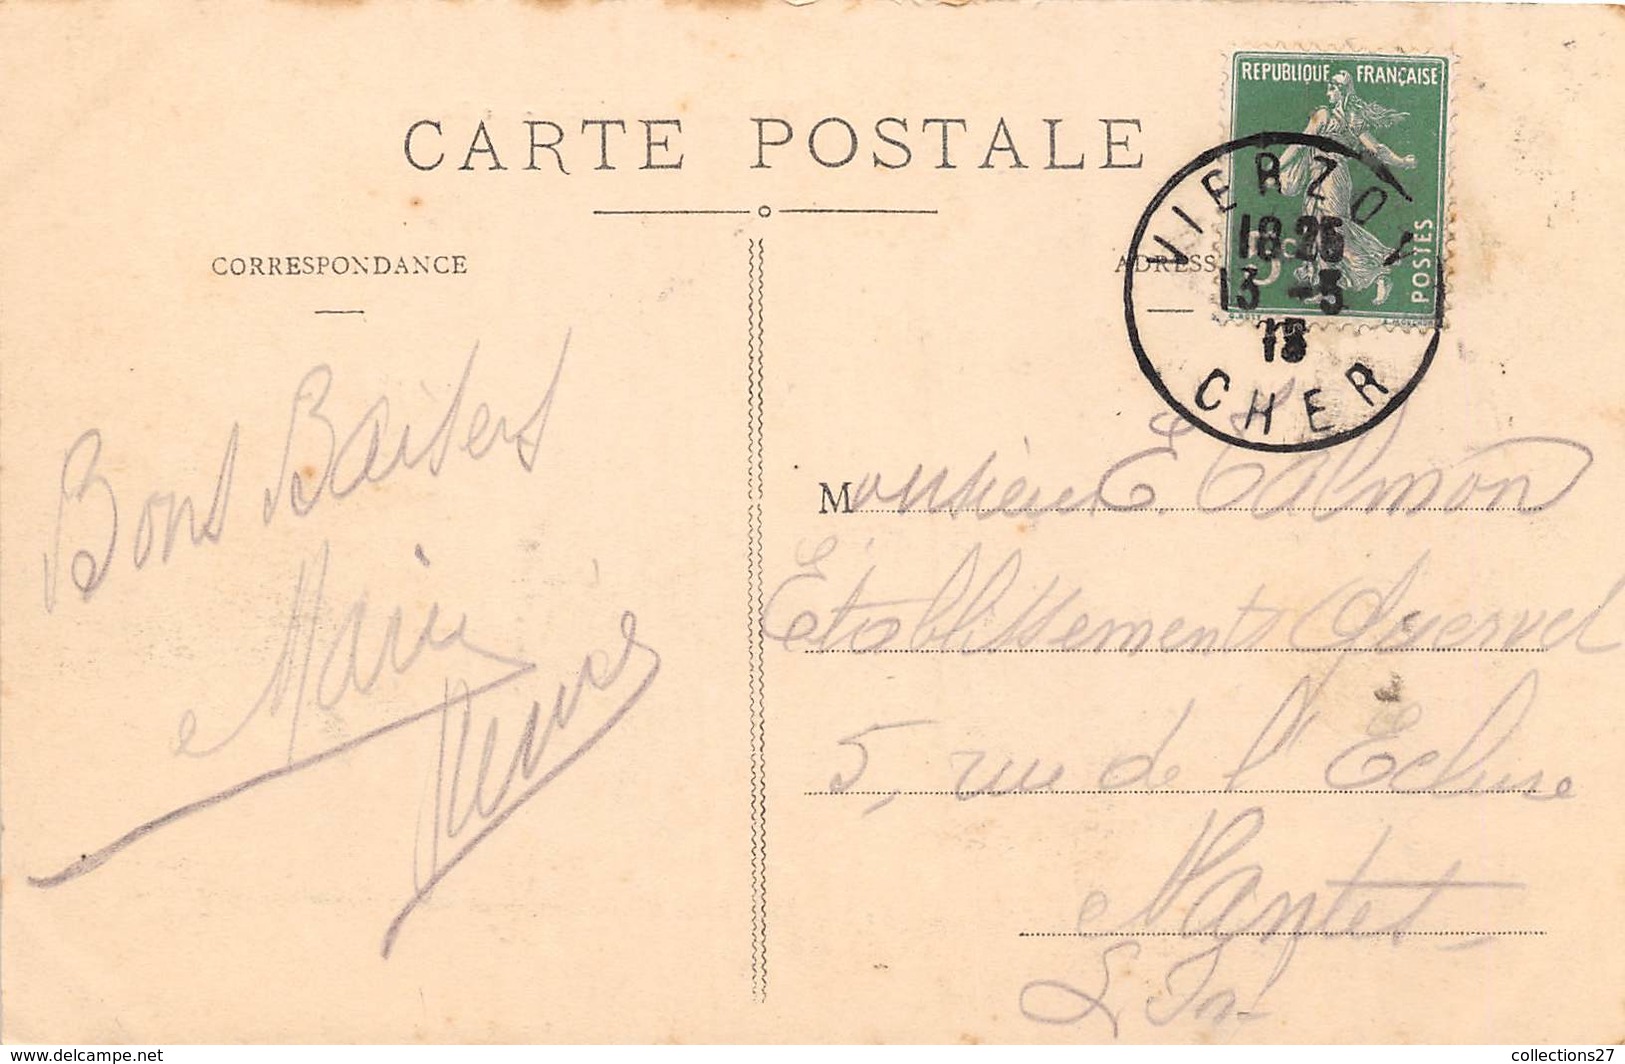 CARTE POSTALE
CORRESPONDANCE
ADRESS
REPUBLIQUE FRANÇAISE
POSTES
VIERZO
13 -5
13
CHER
Bons Baisers
Marie
Monsieur E. Talmon
Etablissements Quervel
5, rue de l'Ecluse
Nantes
L Inf
delcampe.net
collections27